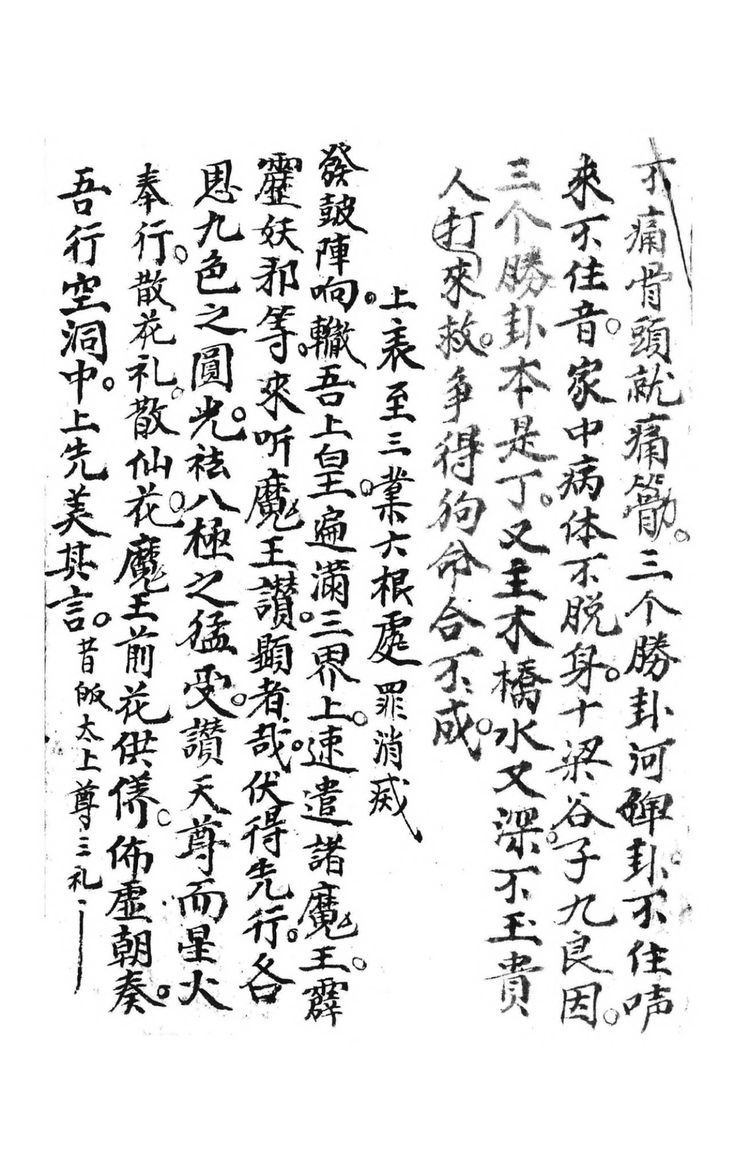 不痛骨頭就痛筋。三个勝卦河卦。不住声
來不住音。家中病体不脱身。十梁谷子九良因。
三个勝卦本是丁。又主木橋水又深。不王貴
人打來救。争得狗命合不成。
上表至三業六根處罪消滅
發鼓陣响。轍吾上皇。遍滿三界上。速遣諸魔王。霹
靂妖邪等。來听魔王讃。顯者哉。伏得先行。各
恩九色之圓光。祛八極之猛受。讃天尊而星火
奉行。散花礼。散仙花。魔王前花供養。佈虛朝奏。
吾行空洞中。上先美其言。昔皈太上尊三礼